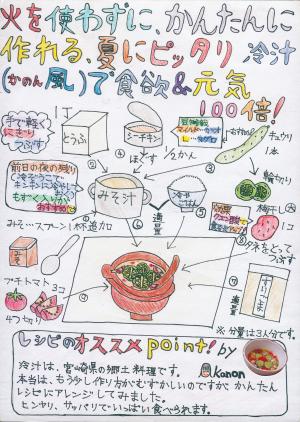 火を使わずに、かんたんに
作れる、夏にピッタリ 冷汁
(かのん風)で食欲&元気
100倍!
手で軽く
にぎり
つぶす
1丁
とうふ
シーチキン
ほぐす
1/2かん
キュウリ
1本
輪切り
前日の夜の残り
みそ汁
冷やごはん
適量
梅干し
1コ
タネをとって
つぶす
みそ…スプーン1杯追加
みそ
プチトマト 3コ
4つ切り
すりごま
適量
※分量は3人分です。
レシピのオススメpoint! by
Kanon
冷汁は、宮崎県の郷土料理です。
本当は、もう少し作り方がむずかしいのですが、かんたん
レシピにアレンジしてみました。
ヒンヤリ、サッパリでいっぱい食べられます。